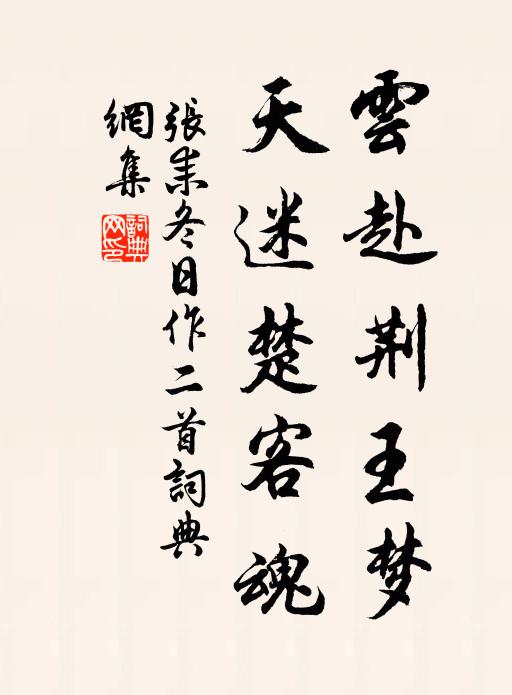 雲赴荆王梦
天迷楚客魂
張耒冬日作二首詞典
網集
詞典網印